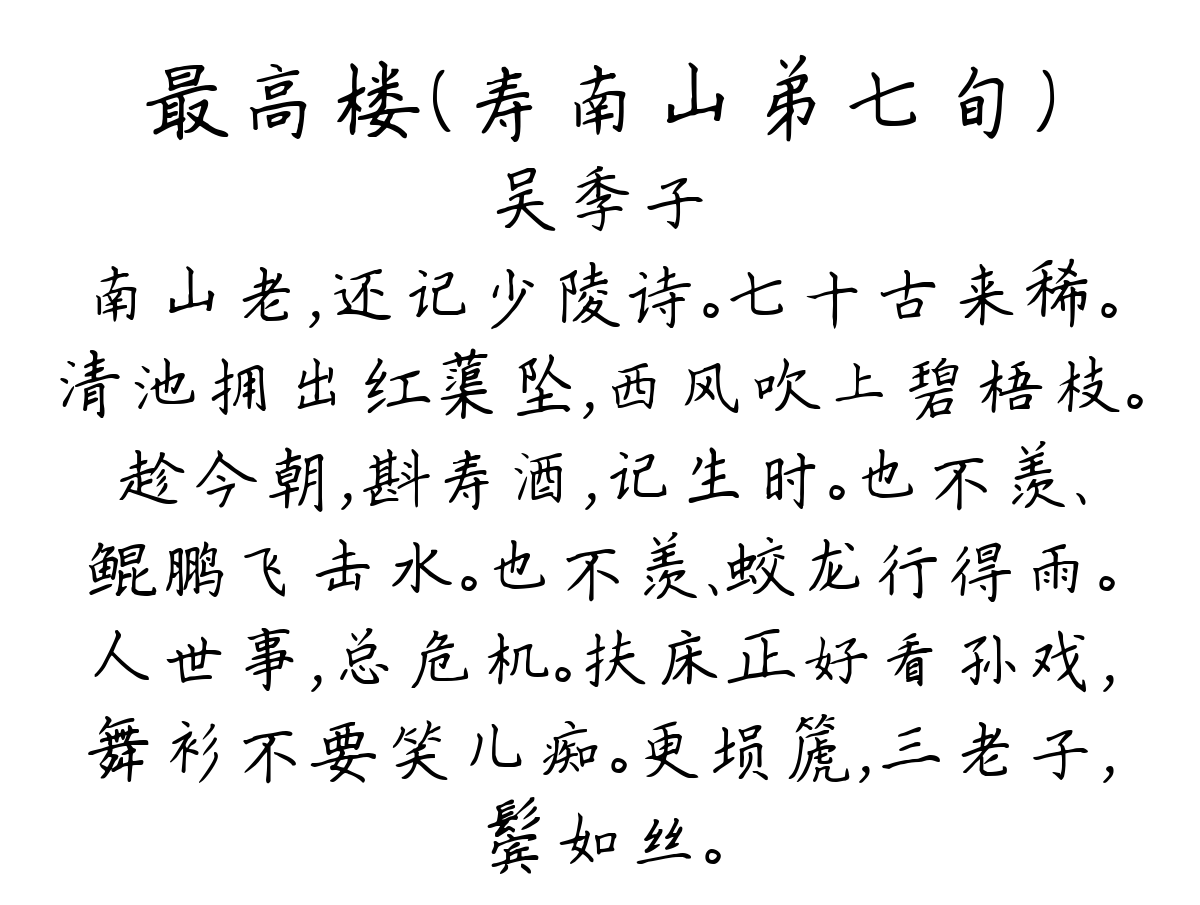 最高楼(寿南山弟七旬)
吴季子
南山老,还记少陵诗。七十古来稀。
清池拥出红蕖坠,西风吹上碧梧枝。
趁今朝,斟寿酒,记生时。也不羡、
鲲鹏飞击水。也不羡、蛟龙行得雨。
人世事,总危机。扶床正好看孙戏,
舞衫不要笑儿痴。更埙篪,三老子,
鬓如丝。